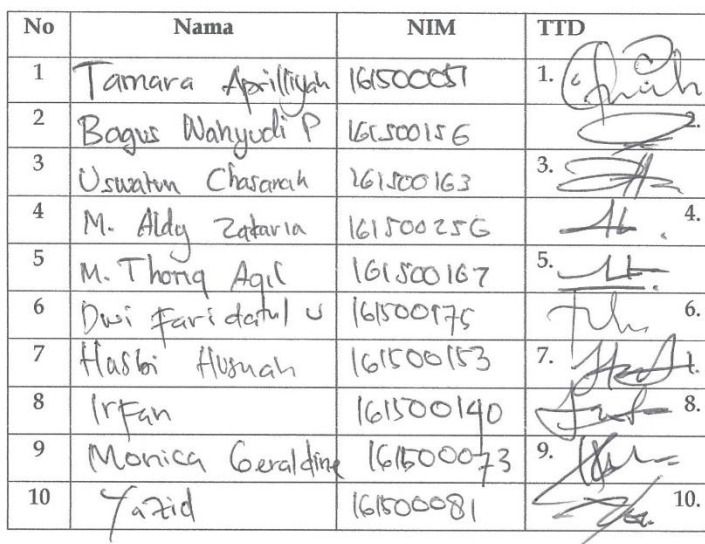 No Nama NIM TTD
1 Tamara Aprilliyah 161500051 1.
2 Bagus Wahyudi P 161500156 2.
3 Uswatun Chasanah 161500163 3.
4 M. Aldy Zakaria 161500256 4.
5 M. Thoriq Aqil 161500167 5.
6 Dwi Faridatul U 161500175 6.
7 Hasbi Husnah 161500153 7.
8 Irfan 161500140 8.
9 Monica Geraldine 161500073 9.
10 Yazid 161500081 10.